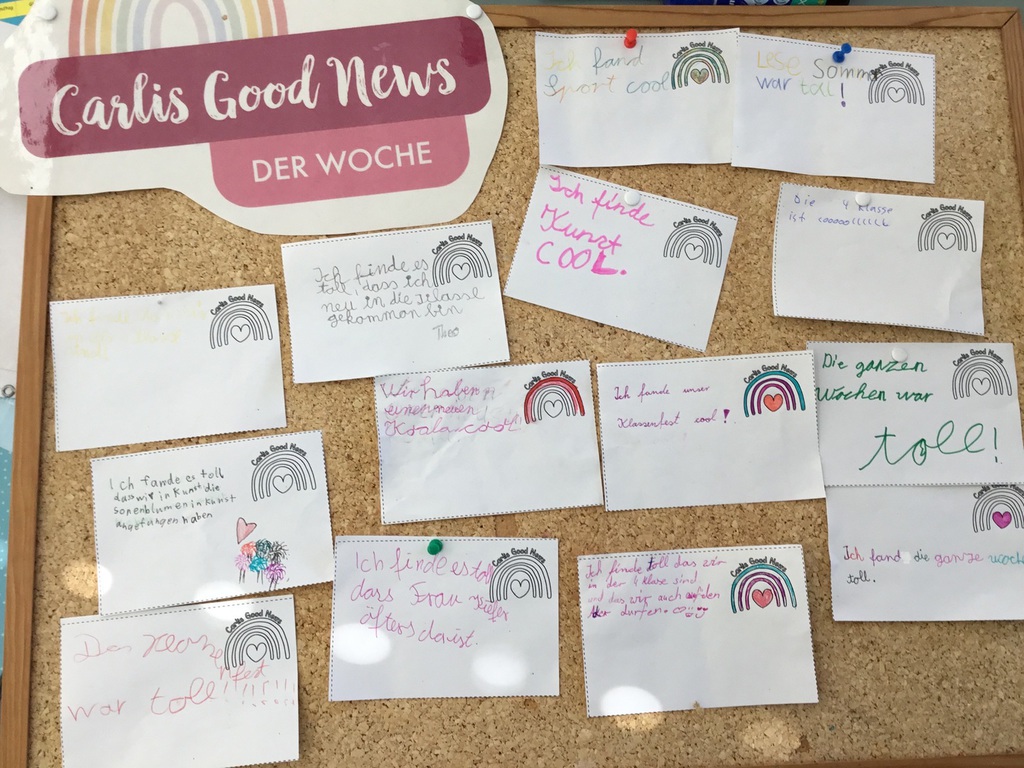 Carlis Good News
DER WOCHE
Ich fand
Sport cool
Carlis Good News
Lese Somm
war toll!
Ich finde
Kunst
COOL.
Carlis Good News
Die 4 Klasse
ist cooooollllll
Carlis Good News
Ich finde es
toll, dass ich
neu in die Klasse
gekommen bin
Theo
Carlis Good News
Carlis Good News
Wir haben
einen neuen
Carlis Good News
Ich fande unser
Klassenfest cool!
Carlis Good News
Die ganzen
Wochen war
toll!
Carlis Good News
Ich fande es toll
das wir in Kunst die
sonenblumen in Kunst
angefangen haben
Carlis Good News
Ich finde es toll
dass Frau Kiefer
öfters da ist.
Carlis Good News
Ich finde toll das wir
in der 4 klase sind
und das wir auch auf den
durfen.
Carlis Good News
Carlis Good News
Ich fand die ganze woche
toll.
Carlis Good News
war toll!!!!!!!!!